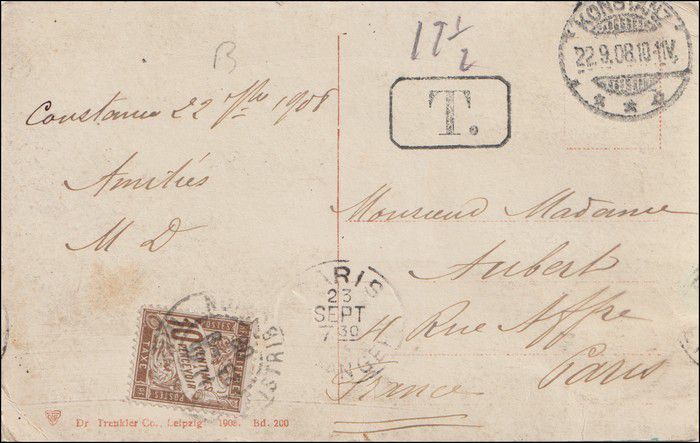 17½
B
KONSTANZ
22.9.08.10-11V.
T.
Constance 22 7bre 1908
Amitiés
M D
Monsieur Madame
Aubert
11 Rue Affre
Paris
France
PARIS
23
SEPT
7 30
10
CENTIMES
A PERCEVOIR
POSTES
Dr Trenkler Co., Leipzig. 1908. Bd. 200